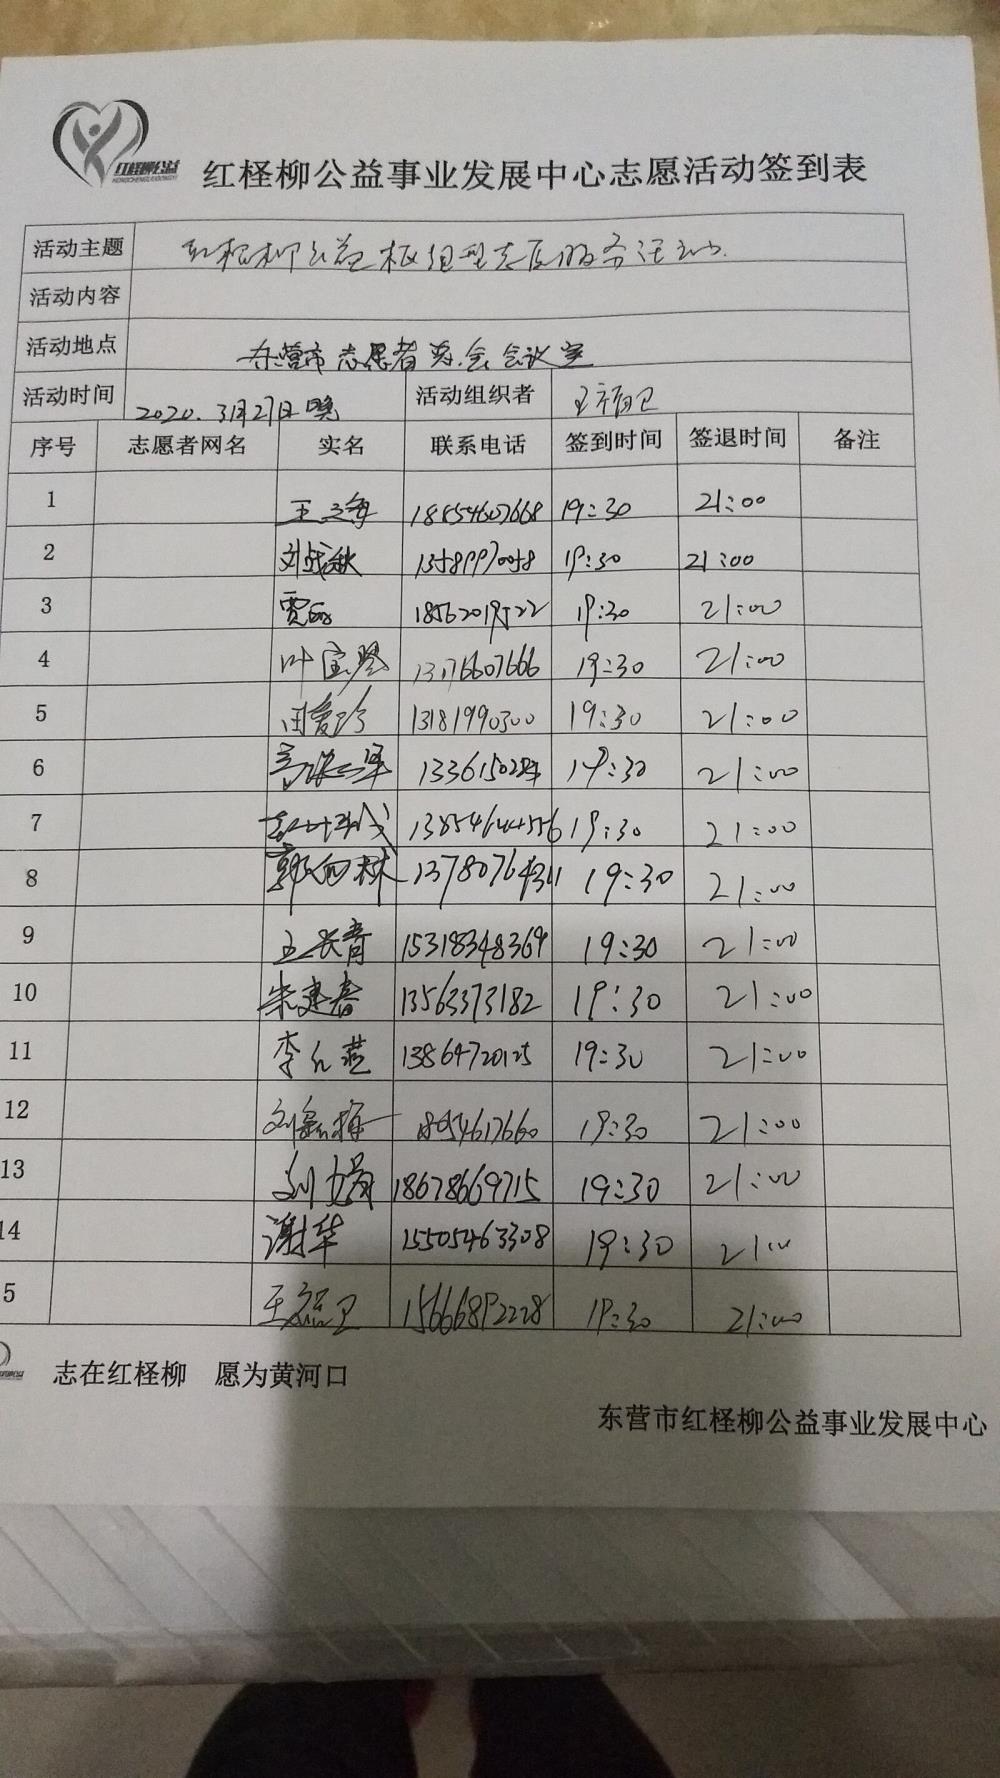 红柽柳公益
红柽柳公益事业发展中心志愿活动签到表
活动主题 红柽柳公益枢纽型志愿服务活动
活动内容
活动地点 东营市志愿者总会会议室
活动时间 2020.3月27日晚 活动组织者
序号 志愿者网名 实名 联系电话 签到时间 签退时间 备注
1 19:30 21:00
2 刘战秋 19:30 21:00
3 贾 19:30 21:00
4 叶宝琴 13176607666 19:30 21:00
5 田爱珍 13181990300 19:30 21:00
6 19:30 21:00
7 19:30 21:00
8 19:30 21:00
9 王长青 15318348369 19:30 21:00
10 朱建春 13563373182 19:30 21:00
11 李红燕 13864720125 19:30 21:00
12 刘 梅 19:30 21:00
13 刘娟 18678669715 19:30 21:00
14 谢华 15505463308 19:30 21:00
5 王 卫 15666892228 19:30 21:00
志在红柽柳 愿为黄河口
东营市红柽柳公益事业发展中心